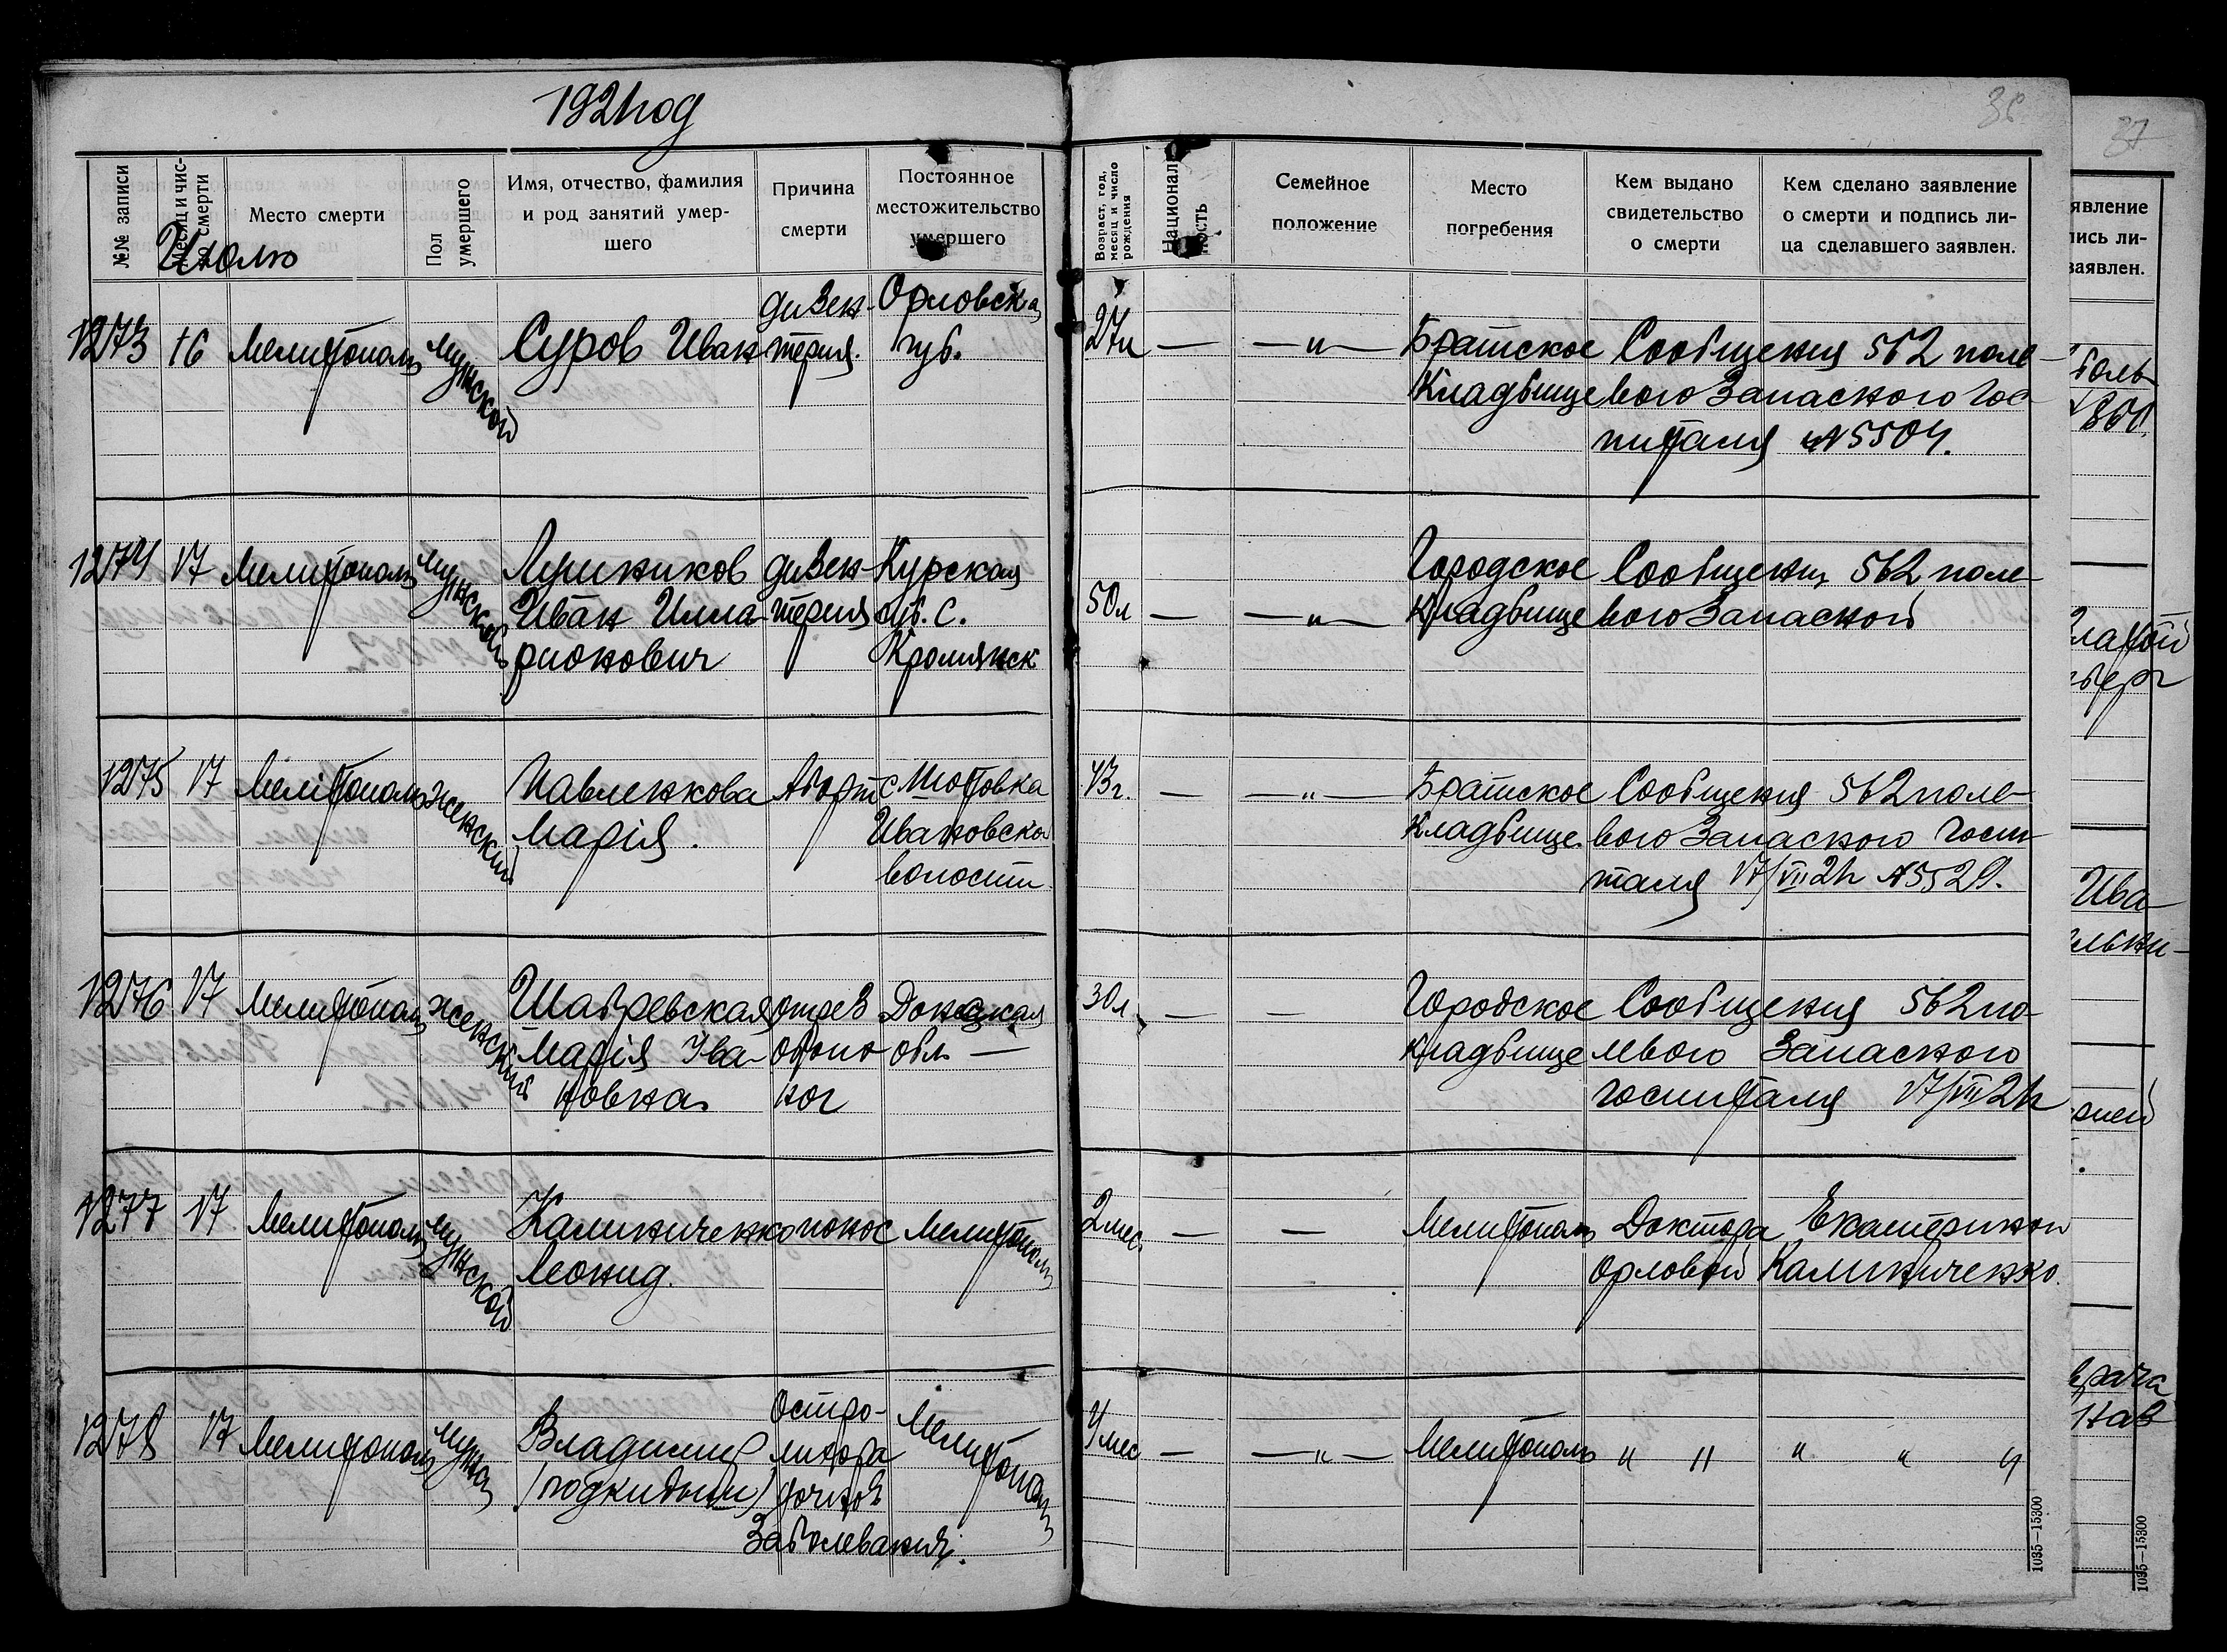 1921 год
36
37
№№ записи
Месяц и чис-
ло смерти
Место смерти
Пол
умершего
Имя, отчество, фамилия
и род занятий умер-
шего
Причина
смерти
Постоянное
местожительство
умершего
Возраст, год,
месяц и число
рождения
Националь-
ность
Семейное
положение
Место
погребения
Кем выдано
свидетельство
о смерти
Кем сделано заявление
о смерти и подпись ли-
ца сделавшего заявлен.
явление
пись ли-
заявлен.
Июль
1273
16
Мелитополь
мужской
Суров Иван
дизен-
терия.
Орловская
губ.
27л
— — " —
Братское
Кладбище
Сообщения 562 поле-
вого Запасного Гос-
питаля №5504.
1274
17
Мелитополь
мужской
Лушников
Иван Илла-
рионович
дизен-
терия
Курская
губ. с.
Кромянск
50л
— — " —
Городское
Кладбище
Сообщения 562 поле-
вого Запасной
1275
17
Мелітополь
женский
Павленкова
Марія.
Аборт
с Тютовка
Ивановской
волости
43г.
— — " —
Братское
Кладбище
Сообщения 562 поле-
вого Запасного госпи
таля 17/VII 21г №5529.
1276
17
Мелитополь
женский
Шабревская
Марія Ива-
новна
отрез
обоио
ног
Донецкая
обл —
30л
— —
Городское
кладбище
Сообщения 562 по-
левого Запасного
госпиталя 17/VII 21г
1277
17
Мелитополь
мужской
Калиниченко
Леонид.
понос
Мелитополь
2 мес.
— —
Мелитополь
Доктора
Орловой
Екатериной
Калиниченко.
1278
17
Мелитополь
мужс
Владимир
(подкидыш)
Остро-
лихора
дочное
Заболевание.
Мелитополь
4 мес
— — " —
Мелитополь
" " " " "
1035—15300
1035—15300